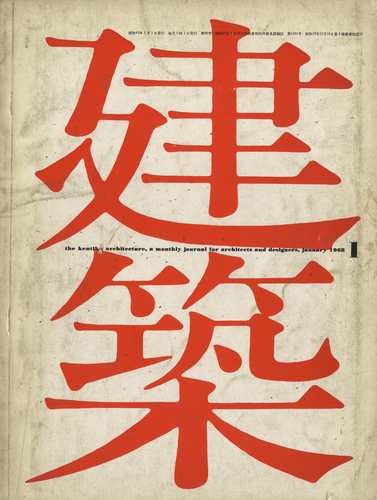 建築
the kentiku architecture, a monthly journal for architects and designers, january 1968
1